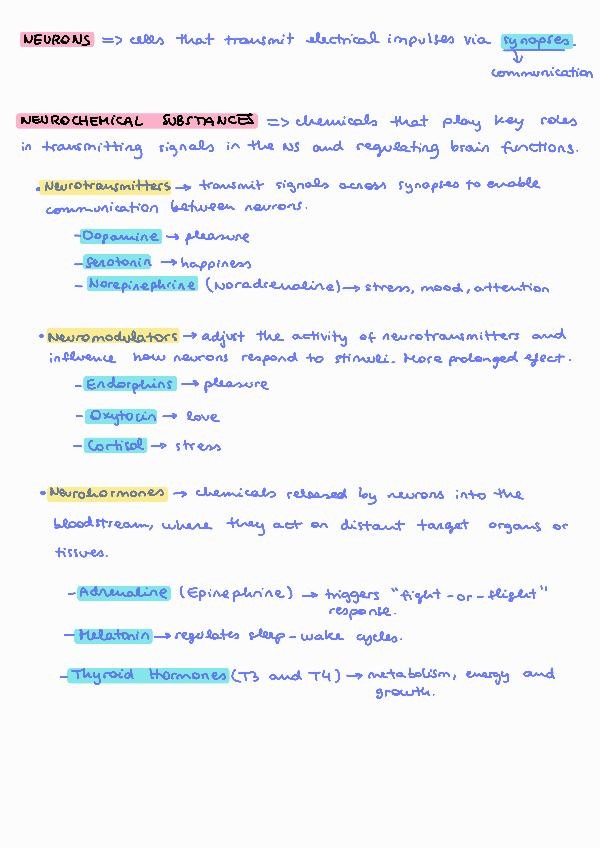 NEURONS => cells that transmit electrical impulses via synapses.
communication
NEUROCHEMICAL SUBSTANCES => chemicals that play key roles
in transmitting signals in the NS and regulating brain functions.
• Neurotransmitters → transmit signals across synapses to enable
communication between neurons.
- Dopamine → pleasure
- Serotonin → happiness
- Norepinephrine (Noradrenaline) → stress, mood, attention
• Neuromodulators → adjust the activity of neurotransmitters and
influence how neurons respond to stimuli. More prolonged efect.
- Endorphins → pleasure
- Oxytocin → love
- Cortisol → stress
• Neurohormones → chemicals released by neurons into the
bloodstream, where they act on distant target organs or
tissues.
- Adrenaline (Epinephrine) → triggers "fight-or-flight"
response.
- Melatonin → regulates sleep-wake cycles.
- Thyroid Hormones (T3 and T4) → metabolism, energy and
growth.